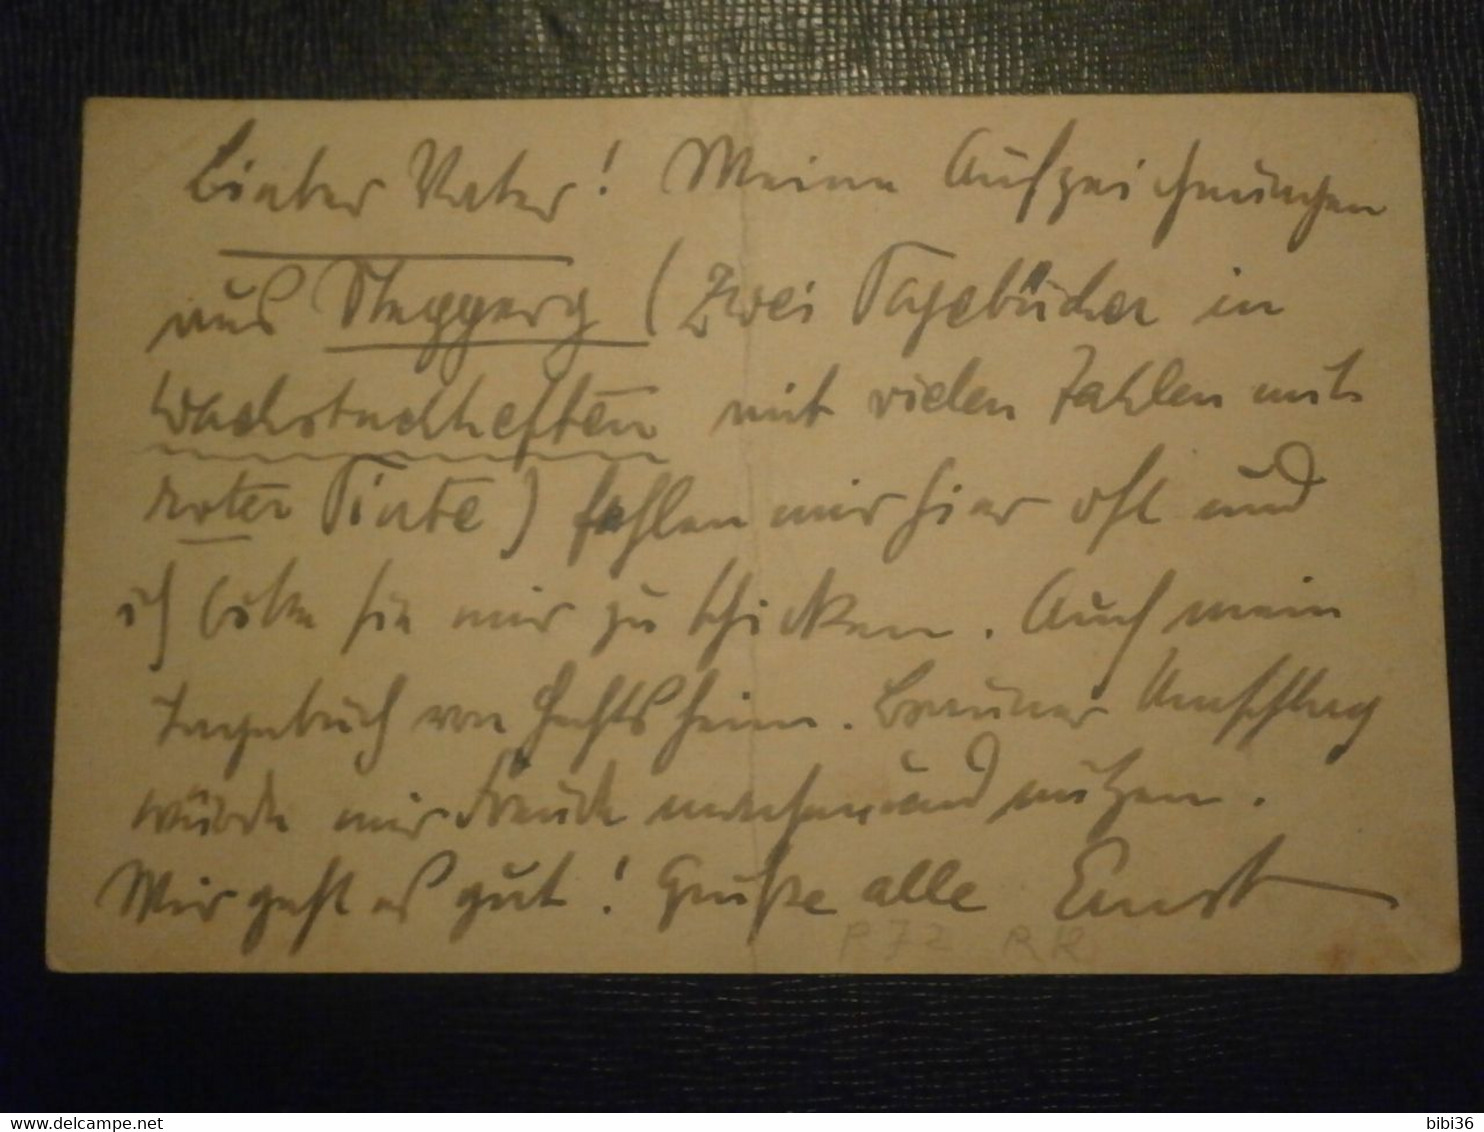 Lieber Vater! Meine Aufzeichnungen
aus Steggerg (Zwei Tagebücher in
Wachstuchheften mit vielen Zahlen mit
roter Tinte) fehlen mir hier oft und
ich bitte sie mir zu schicken. Auch mein
Tagebuch von Hechtsheim. Brauner Umschlag
würde mir Freude machen und nützen.
Mir geht es gut! Grüße alle Ernst
P72 RR
bibi36